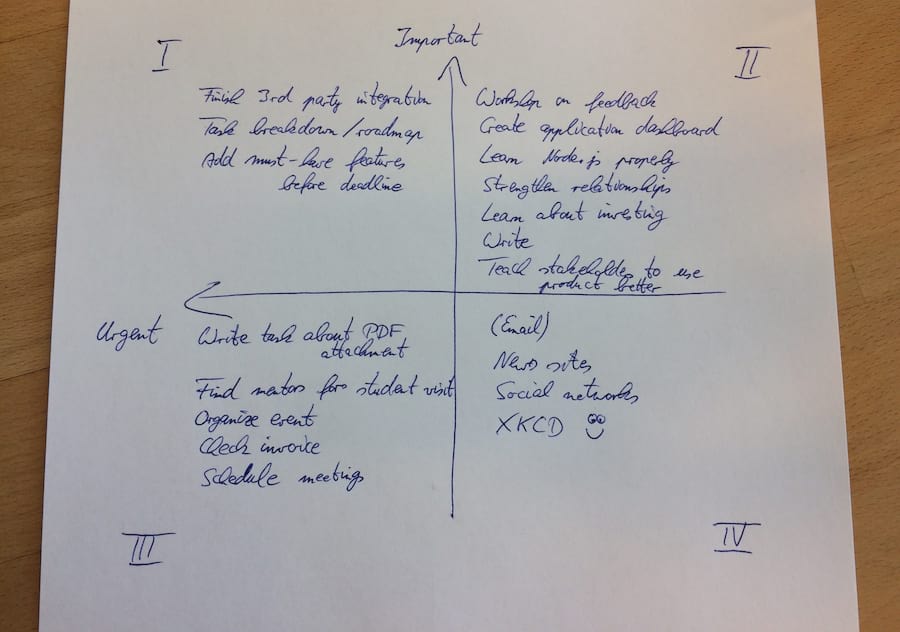 Important
I
II
Finish 3rd party integration
Task breakdown/roadmap
Add must-have features
before deadline
Workshop on feedback
Create application dashboard
Learn Node.js properly
Strengthen relationships
Learn about investing
Write
Teach stakeholders to use
product better
Urgent
Write task about PDF
attachment
Find mentors for student visit
Organize event
Check invoice
Schedule meetings
(Email)
News sites
Social networks
XKCD
III
IV